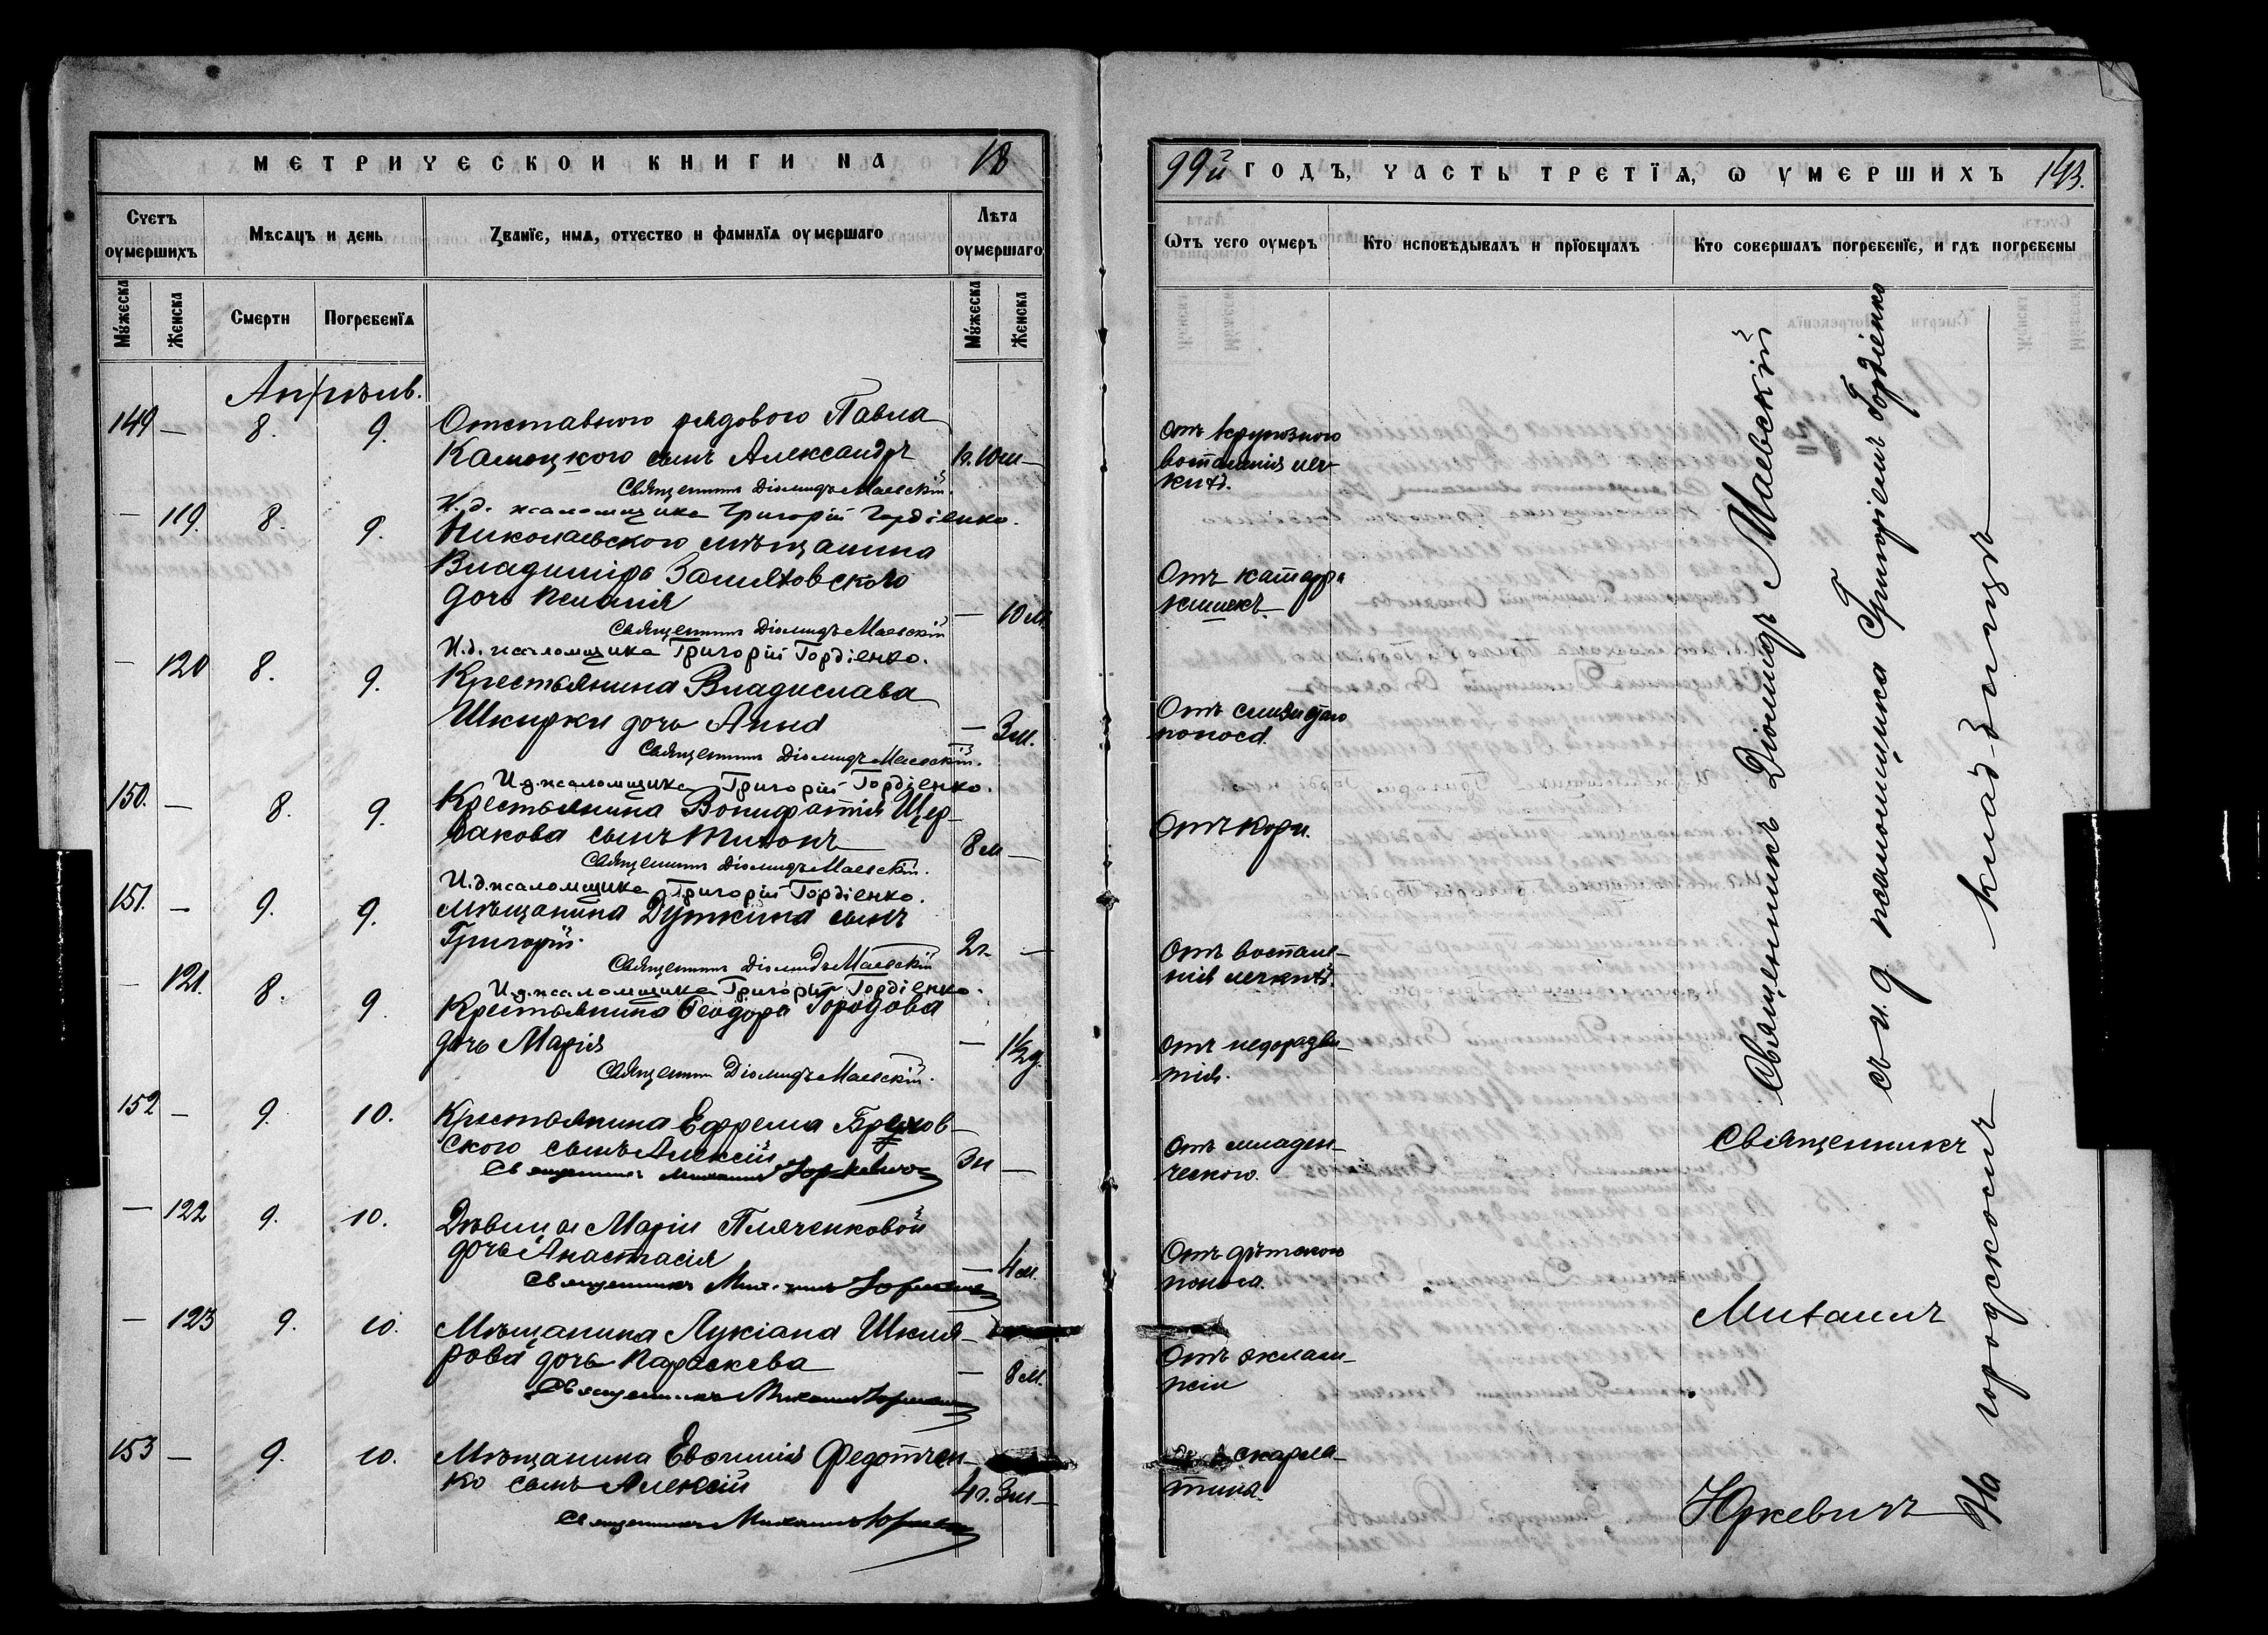 МЕТРИЧЕСКОЙ КНИГИ НА 18
Счетъ оумершихъ
Мѣсяцъ и день
Званїе, имя, отчество и фамилїя оумершаго
Лѣта оумершаго
Мꙋжеска
Женска
Смерти
Погребенїя
Мꙋжеска
Женска
Апрѣль.
149 — 8. 9. Отставного рядового Павла
Камоцкого сынъ Александръ 1г. 10м —
Священникъ Діомидъ Маевскій.
И. д. псаломщика Григорій Гордіенко.
— 119. 8. 9. Николаевского мѣщанина
Владиміра
дочь Пелагія — 10 м.
Священникъ Діомидъ Маевскій
И. д. псаломщика Григорій Гордіенко.
— 120 8. 9. Крестьянина Владислава
Шкирки дочь Анна — 3м.
Священникъ Діомидъ Маевскій.
И. д. псаломщика Григорій Гордіенко.
150. — 8. 9. Крестьянина Вонифатія Щер-
бакова сынъ Тихонъ 8м —
Священникъ Діомидъ Маевскій.
И. д. псаломщика Григорій Гордіенко.
151. — 9. 9. Мѣщанина Дуткина сынъ
Григорій. 2г. —
Священникъ Діомидъ Маевскій
И. д. псаломщика Григорій Гордіенко.
— 121. 8. 9. Крестьянина Ѳеодора Городова
дочь Марія — 1½д.
Священникъ Діомидъ Маевскій.
152 — 9. 10. Крестьянина Ефрема
ского сынъ Алексій 3м —
Священникъ Михаилъ Юркевичъ
— 122 9. 10. Дѣвицы Маріи Пляченковой
дочь Анастасія — 4м.
Священникъ Михаилъ Юркевичъ
— 123 9. 10. Мѣщанина Лукіана Шкля-
рова дочь Параскева — 8м.
Священникъ Михаилъ Юркевичъ
153 — 9. 10. Мѣщанина Евѳимія Федотчен-
ко сынъ Алексій 4г. 3м —
Священникъ Михаилъ Юркевичъ
99й ГОДЪ, ЧАСТЬ ТРЕТЇЯ, Ѡ ОУМЕРШИХЪ 143.
Ѿтъ чего оумеръ
Кто исповѣдывалъ и прїобщалъ
Кто совершалъ погребенїе, и гдѣ погребены
Отъ крупозного
воспаленія лег-
кихъ.
Отъ катарра
кишекъ.
Отъ слизистаго
поноса.
Отъ кори.
Отъ воспале-
нія легкихъ.
Отъ недоразви-
тія.
Отъ младен-
ческого.
Отъ дѣтского
поноса.
Отъ эклам-
псіи
скарла-
тина.
Священникъ Діомидъ Маевскій
съ и. д. псаломщика Григоріемъ Гордіенко
Священникъ
Михаилъ
Юркевичъ
На городскомъ кладбищѣ